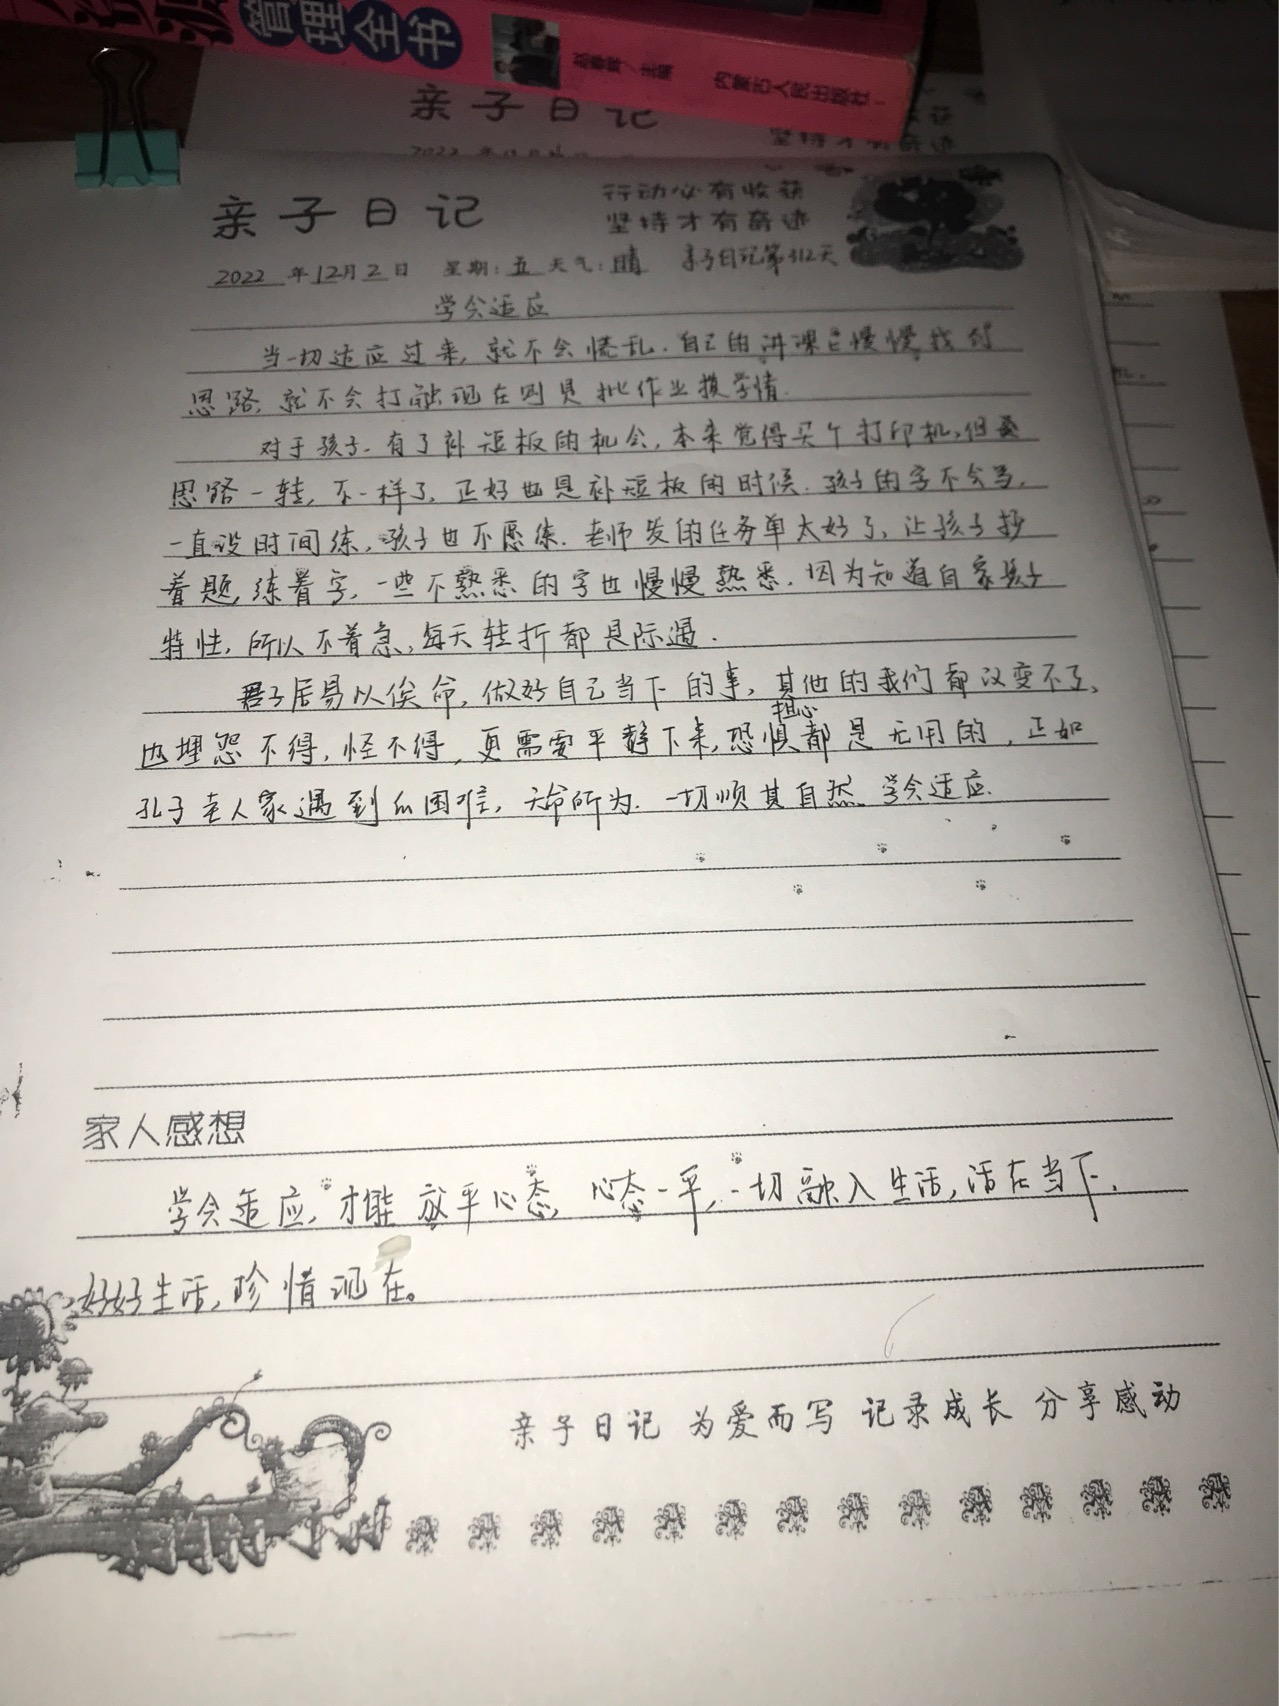 管理全书
内蒙古人民出版社
亲子日记
坚持才有奇迹
亲子日记
行动必有收获
坚持才有奇迹
2022年12月2日 星期:五 天气:晴 亲子日记第312天
学会适应
当一切适应过来,就不会慌乱.自己的讲课已慢慢找到
思路,就不会打融现在则是批作业摸学情.
对于孩子.有了补短板的机会,本来觉得买个打印机,但
思路一转,不一样了,正好也是补短板的时候.孩子的字不会写,
一直没时间练,孩子也不愿练.老师发的任务单太好了,让孩子抄
着题,练着字,一些不熟悉的字也慢慢熟悉.因为知道自家孩子
特性,所以不着急,每天转折都是际遇.
君子居易以俟命,做好自己当下的事,其他的我们都改变不了,
也埋怨不得,怪不得,更需要平静下来,担心恐惧都是无用的,正如
孔子老人家遇到的困难,天命所为.一切顺其自然,学会适应.
家人感想
学会适应,才能放平心态,心态一平,一切融入生活,活在当下,
好好生活,珍惜现在。
亲子日记 为爱而写 记录成长 分享感动